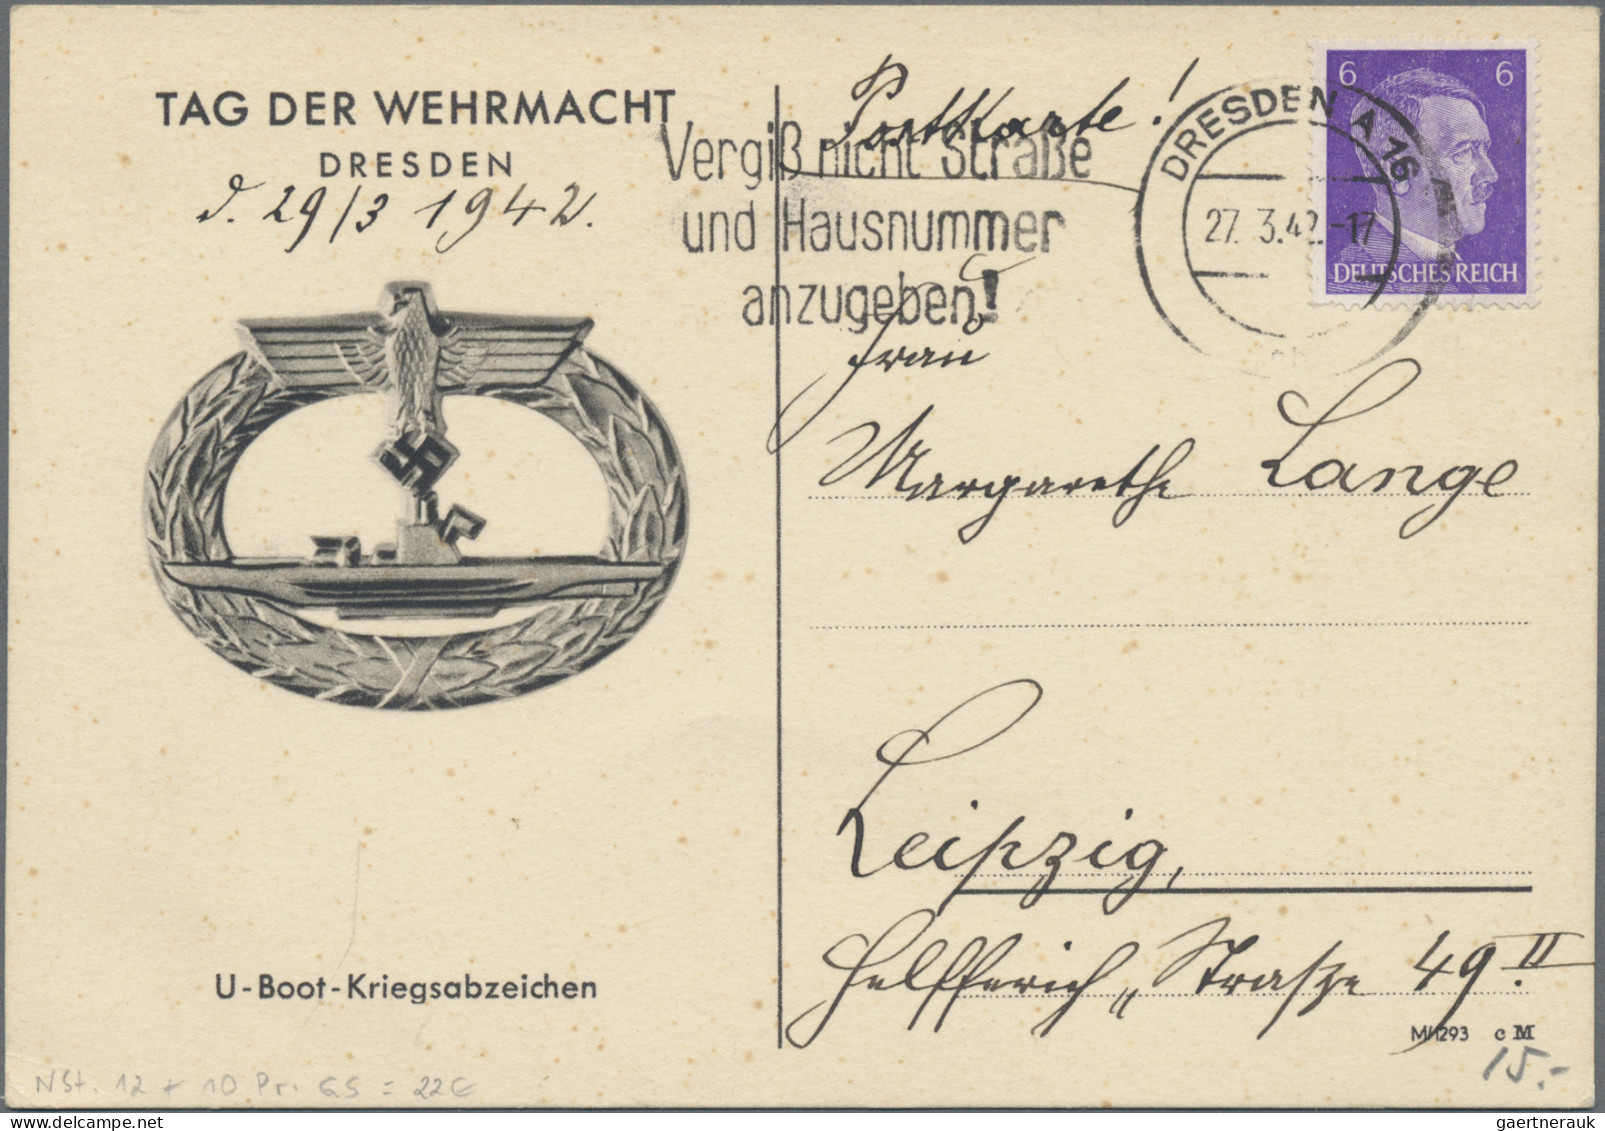 TAG DER WEHRMACHT
DRESDEN
d. 29/3 1942.
U-Boot-Kriegsabzeichen
NSt. 12 + 10 Pr. GS = 22€
Postkarte!
Vergiß nicht Straße
und Hausnummer
anzugeben!
DRESDEN A 16
27. 3.42.-17
6 6
DEUTSCHES REICH
Frau
Margarethe Lange
Leipzig,
Helfferich-Straße 49.II
M/1293 c M
15.-
gaertnerauk